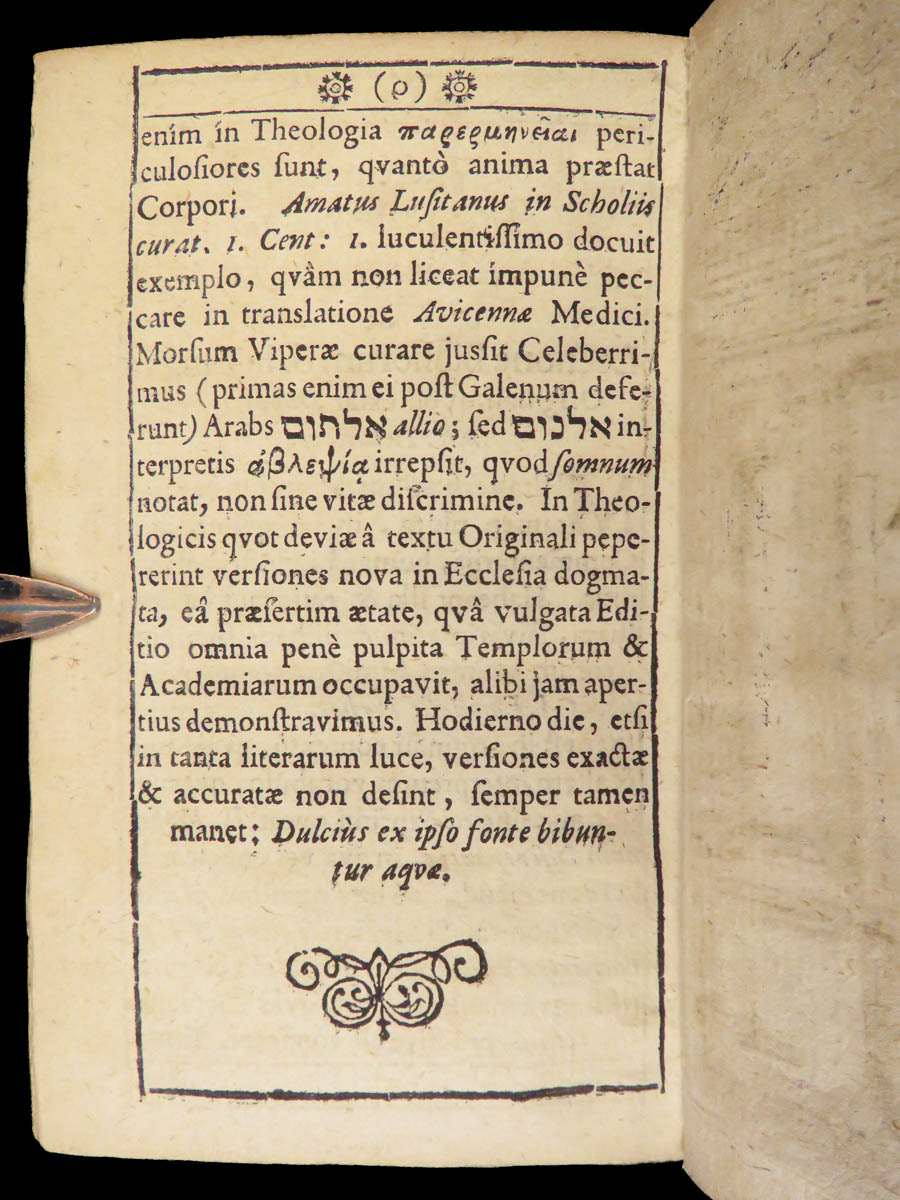 (ϱ)
enim in Theologia παρερμηνεῖαι peri-
culoſiores ſunt, qvantò anima præſtat
Corpori. Amatus Luſitanus in Scholiis
curat. 1. Cent: 1. luculentiſſimo docuit
exemplo, qvâm non liceat impunè pec-
care in translatione Avicennæ Medici.
Morſum Viperæ curare juſſit Celeberri-
mus (primas enim ei poſt Galenum defe-
runt) Arabs אלתום allio; ſed אלנום in-
terpretis ἀβλεψίᾳ irrepſit, qvod ſomnum
notat, non ſine vitæ diſcrimine. In Theo-
logicis qvot deviæ â textu Originali pepe-
rerint verſiones nova in Eccleſia dogma-
ta, eâ præſertim ætate, qvâ vulgata Edi-
tio omnia penè pulpita Templorum &
Academiarum occupavit, alibi jam aper-
tius demonſtravimus. Hodierno die, etſi
in tanta literarum luce, verſiones exactæ
& accuratæ non deſint, ſemper tamen
manet; Dulciùs ex ipſo fonte bibun-
tur aqvæ.